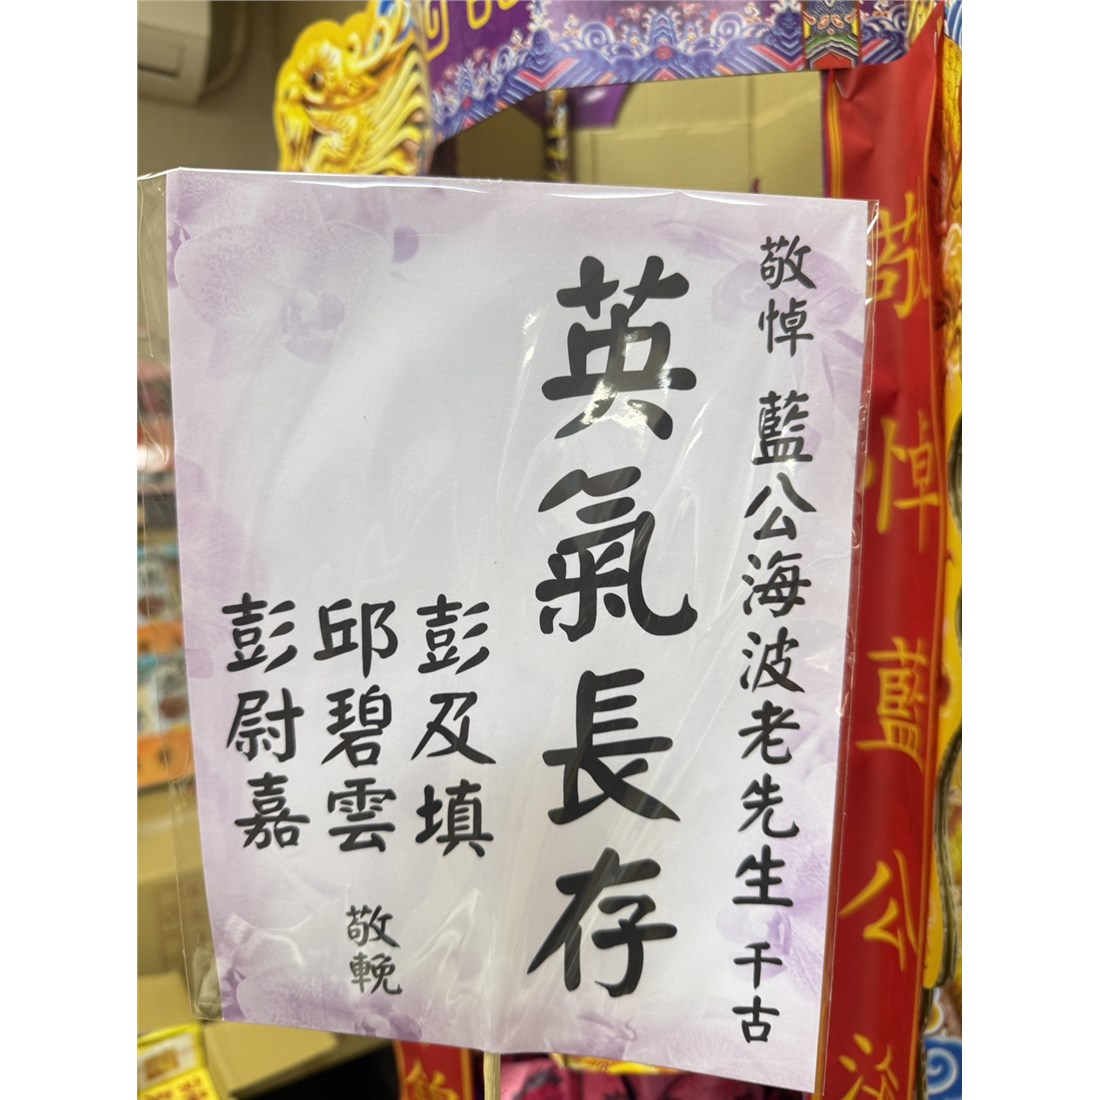 敬悼 藍公海波老先生 千古
英氣長存
彭及填
邱碧雲
彭尉嘉
敬輓
敬悼藍公海